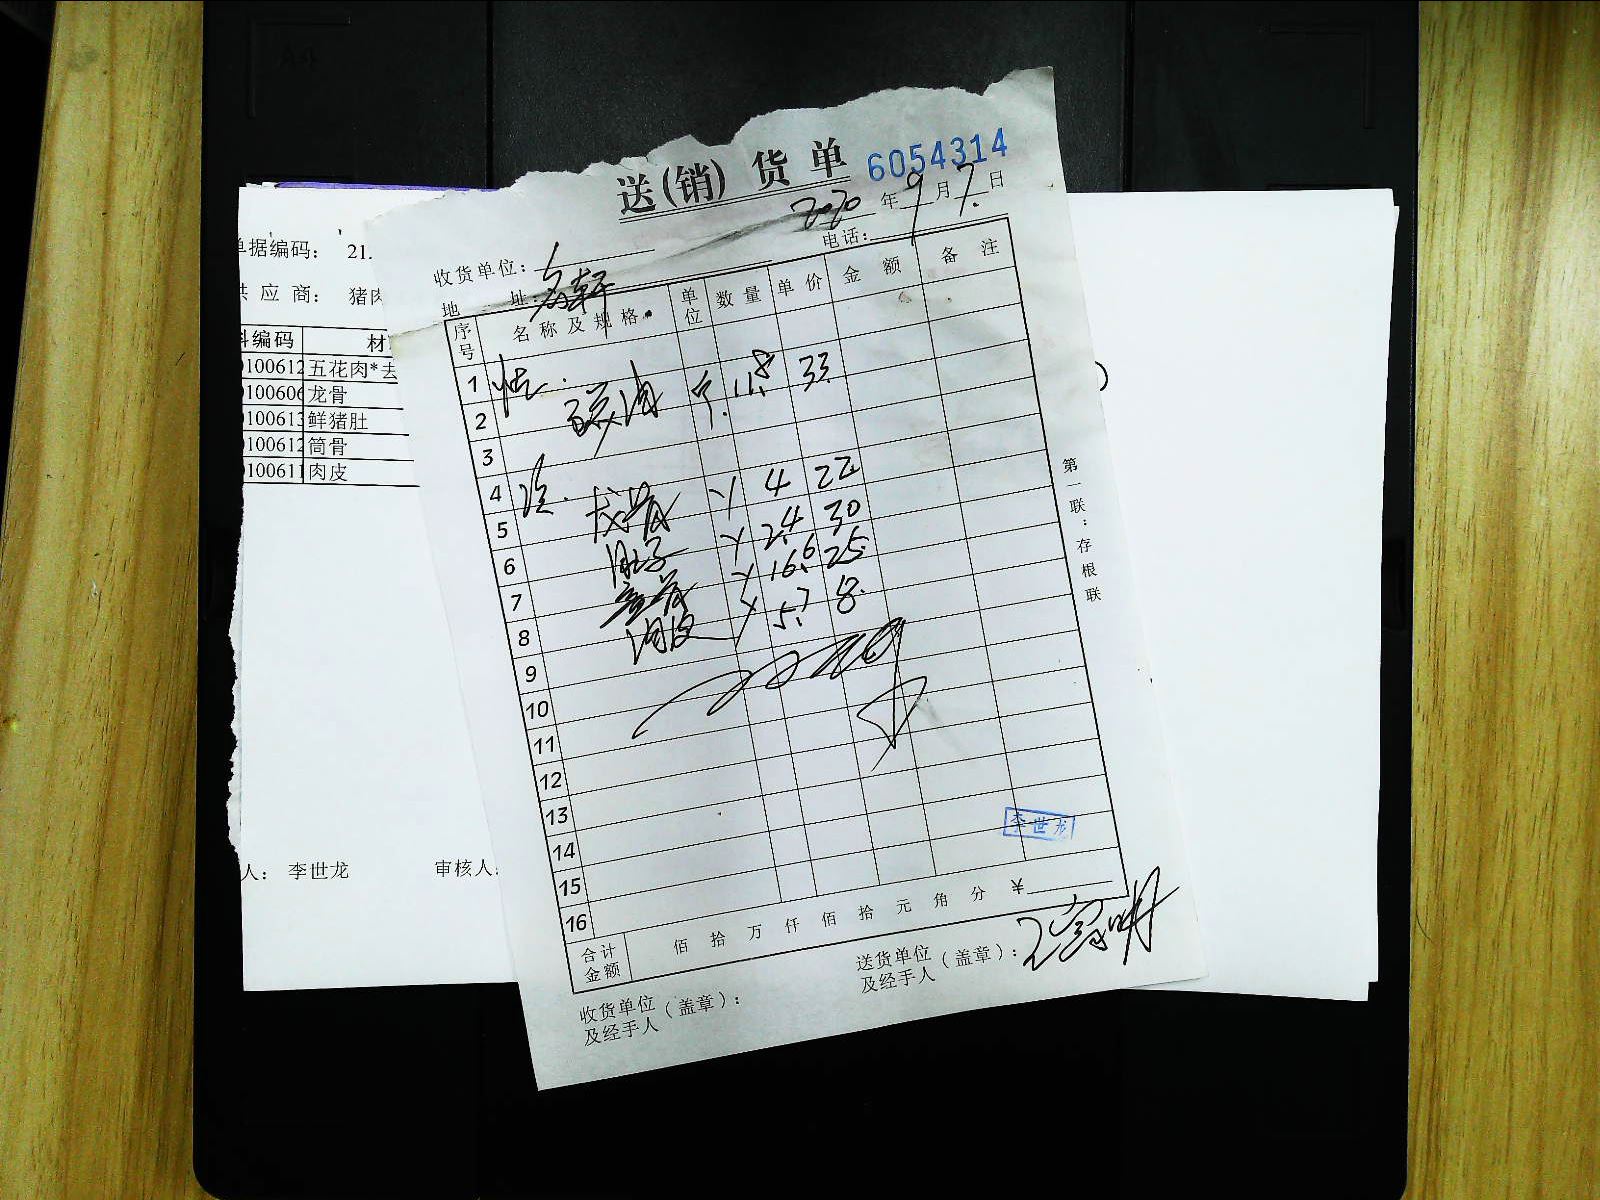 送(销)货单 6054314
2020年9月7日
收货单位：
电话：
地 址：
序号 名称及规格 单位 数量 单价 金额 备注
1
2 斤 11.8 33
3
4
5 龙骨 4 22
6 肚子 2.4 30
7 筒骨 16.6 25
8 肉皮 5.7 8
9
10
11
12
13
14
15
16
合计金额 佰 拾 万 仟 佰 拾 元 角 分 ¥
李世龙
收货单位及经手人（盖章）：
送货单位及经手人（盖章）：
第一联：存根联
单据编码： 21.
供应商： 猪肉
料编码 材
0100612 五花肉*去
0100606 龙骨
0100613 鲜猪肚
0100612 筒骨
0100611 肉皮
人： 李世龙 审核人：